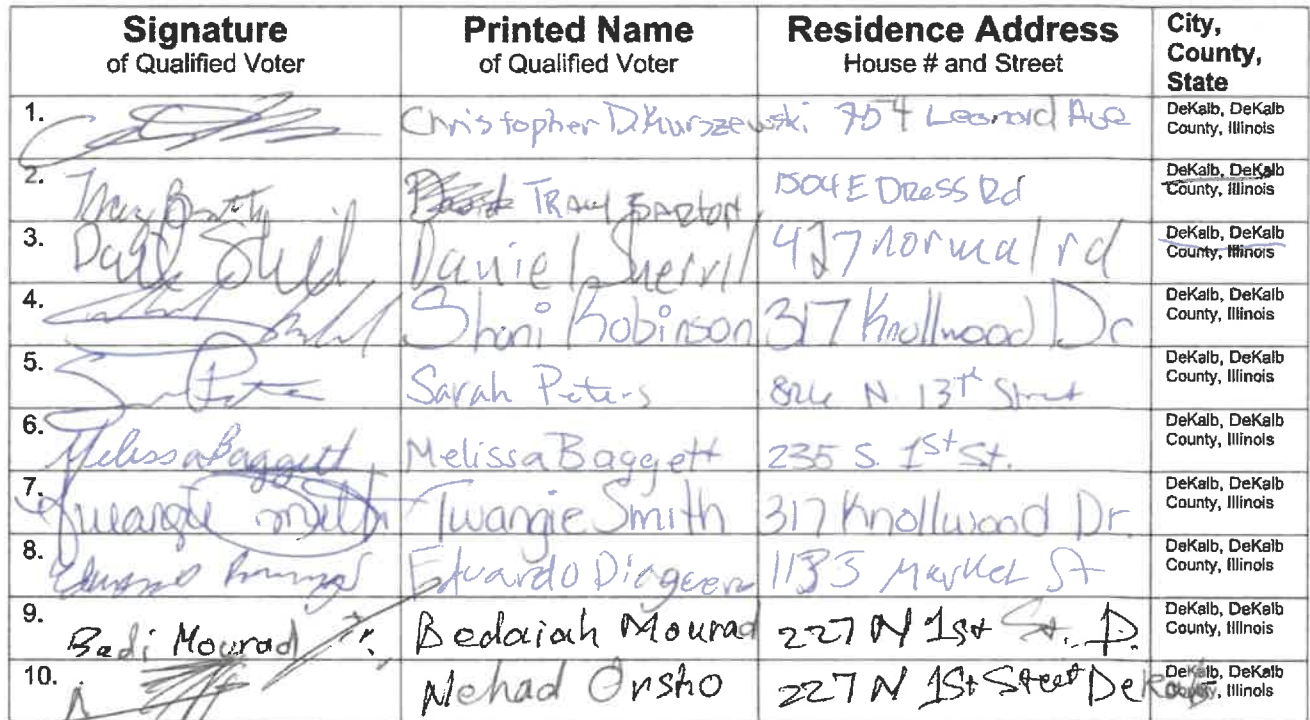 Signature Printed Name Residence Address City,
of Qualified Voter of Qualified Voter House # and Street County,
State
1. Christopher D. Kurszewski 754 Leonard Ave DeKalb, DeKalb
County, Illinois
2. 1504 E Dress Rd DeKalb, DeKalb
County, Illinois
3. Daniel Sherril 427 normal rd DeKalb, DeKalb
County, Illinois
4. Shani Robinson 317 Knollwood Dr DeKalb, DeKalb
County, Illinois
5. Sarah Peters N 13th Street DeKalb, DeKalb
County, Illinois
6. Melissa Baggett Melissa Baggett 235 S. 1st St. DeKalb, DeKalb
County, Illinois
7. Twangie Smith Twangie Smith 317 Knollwood Dr. DeKalb, DeKalb
County, Illinois
8. Eduardo Market St DeKalb, DeKalb
County, Illinois
9. Badi Mourad Bedaiah Mourad 227 N 1st St. D. DeKalb, DeKalb
County, Illinois
10. Nehad Orsho 227 N 1st Street DeKalb DeKalb, DeKalb
County, Illinois